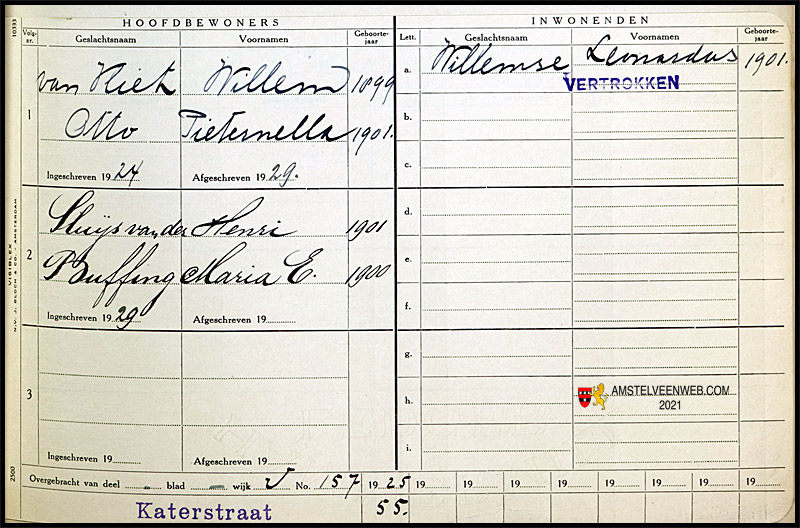 HOOFDBEWONERS
Volg-nr. Geslachtsnaam Voornamen Geboorte-jaar
1 van Niek Willem 1899
Otto Pieternella 1901.
Ingeschreven 1924 Afgeschreven 1929.
2 Sluijs van der Henri 1901
Buffing Maria E. 1900
Ingeschreven 1929 Afgeschreven 19
3
Ingeschreven 19 Afgeschreven 19
INWONENDEN
Lett. Geslachtsnaam Voornamen Geboorte-jaar
a. Willemse Leonardus 1901.
VERTROKKEN
b.
c.
d.
e.
f.
g.
h.
i.
AMSTELVEENWEB.COM
2021
Overgebracht van deel blad wijk V No. 157 1925 19 19 19 19 19 19 19 19 19
Katerstraat 55.
10333
VISIBLEX
N.V. J. BLOCH & CO. - AMSTERDAM
2500